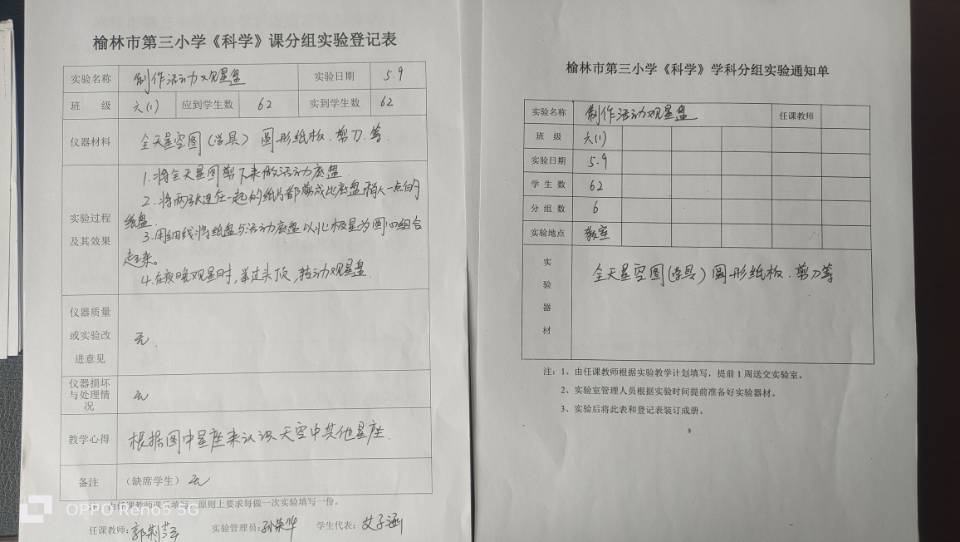 榆林市第三小学《科学》课分组实验登记表
实验名称 制作活动观星盘 实验日期 5.9
班 级 六(1) 应到学生数 62 实到学生数 62
仪器材料 全天星空图(学具) 圆形纸板、剪刀等
实验过程及其效果
1.将全天星图剪下来做活动底盘
2.将两张连在一起的纸片都剪成比底盘稍大一点的
纸盘
3.用细线将纸盘与活动底盘以北极星为圆心组合
起来。
4.在夜晚观星时,举过头顶,转动观星盘
仪器质量
或实验改
进意见
无.
仪器损坏
与处理情
况
无
教学心得 根据图中星座来认识天空中其他星座.
备注 (缺席学生) 无
任课教师填写,原则上要求每做一次实验填写一份。
任课教师: 实验管理员: 学生代表:
OPPO Reno5 5G
榆林市第三小学《科学》学科分组实验通知单
实验名称 制作活动观星盘 任课教师
班 级 六(1)
实验日期 5.9
学 生 数 62
分 组 数 6
实验地点 教室
实验器材 全天星空图(学具) 圆形纸板、剪刀等
注:1、由任课教师根据实验教学计划填写,提前1周送交实验室。
2、实验室管理人员根据实验时间提前准备好实验器材。
3、实验后将此表和登记表装订成册。